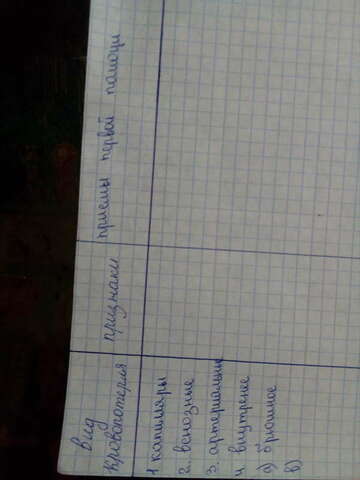 вид
кровопотеря
признаки
приемы первой помощи
1 капиляры
2. венозные
3. артериальные
4. внутренее
а) брюшное
в)